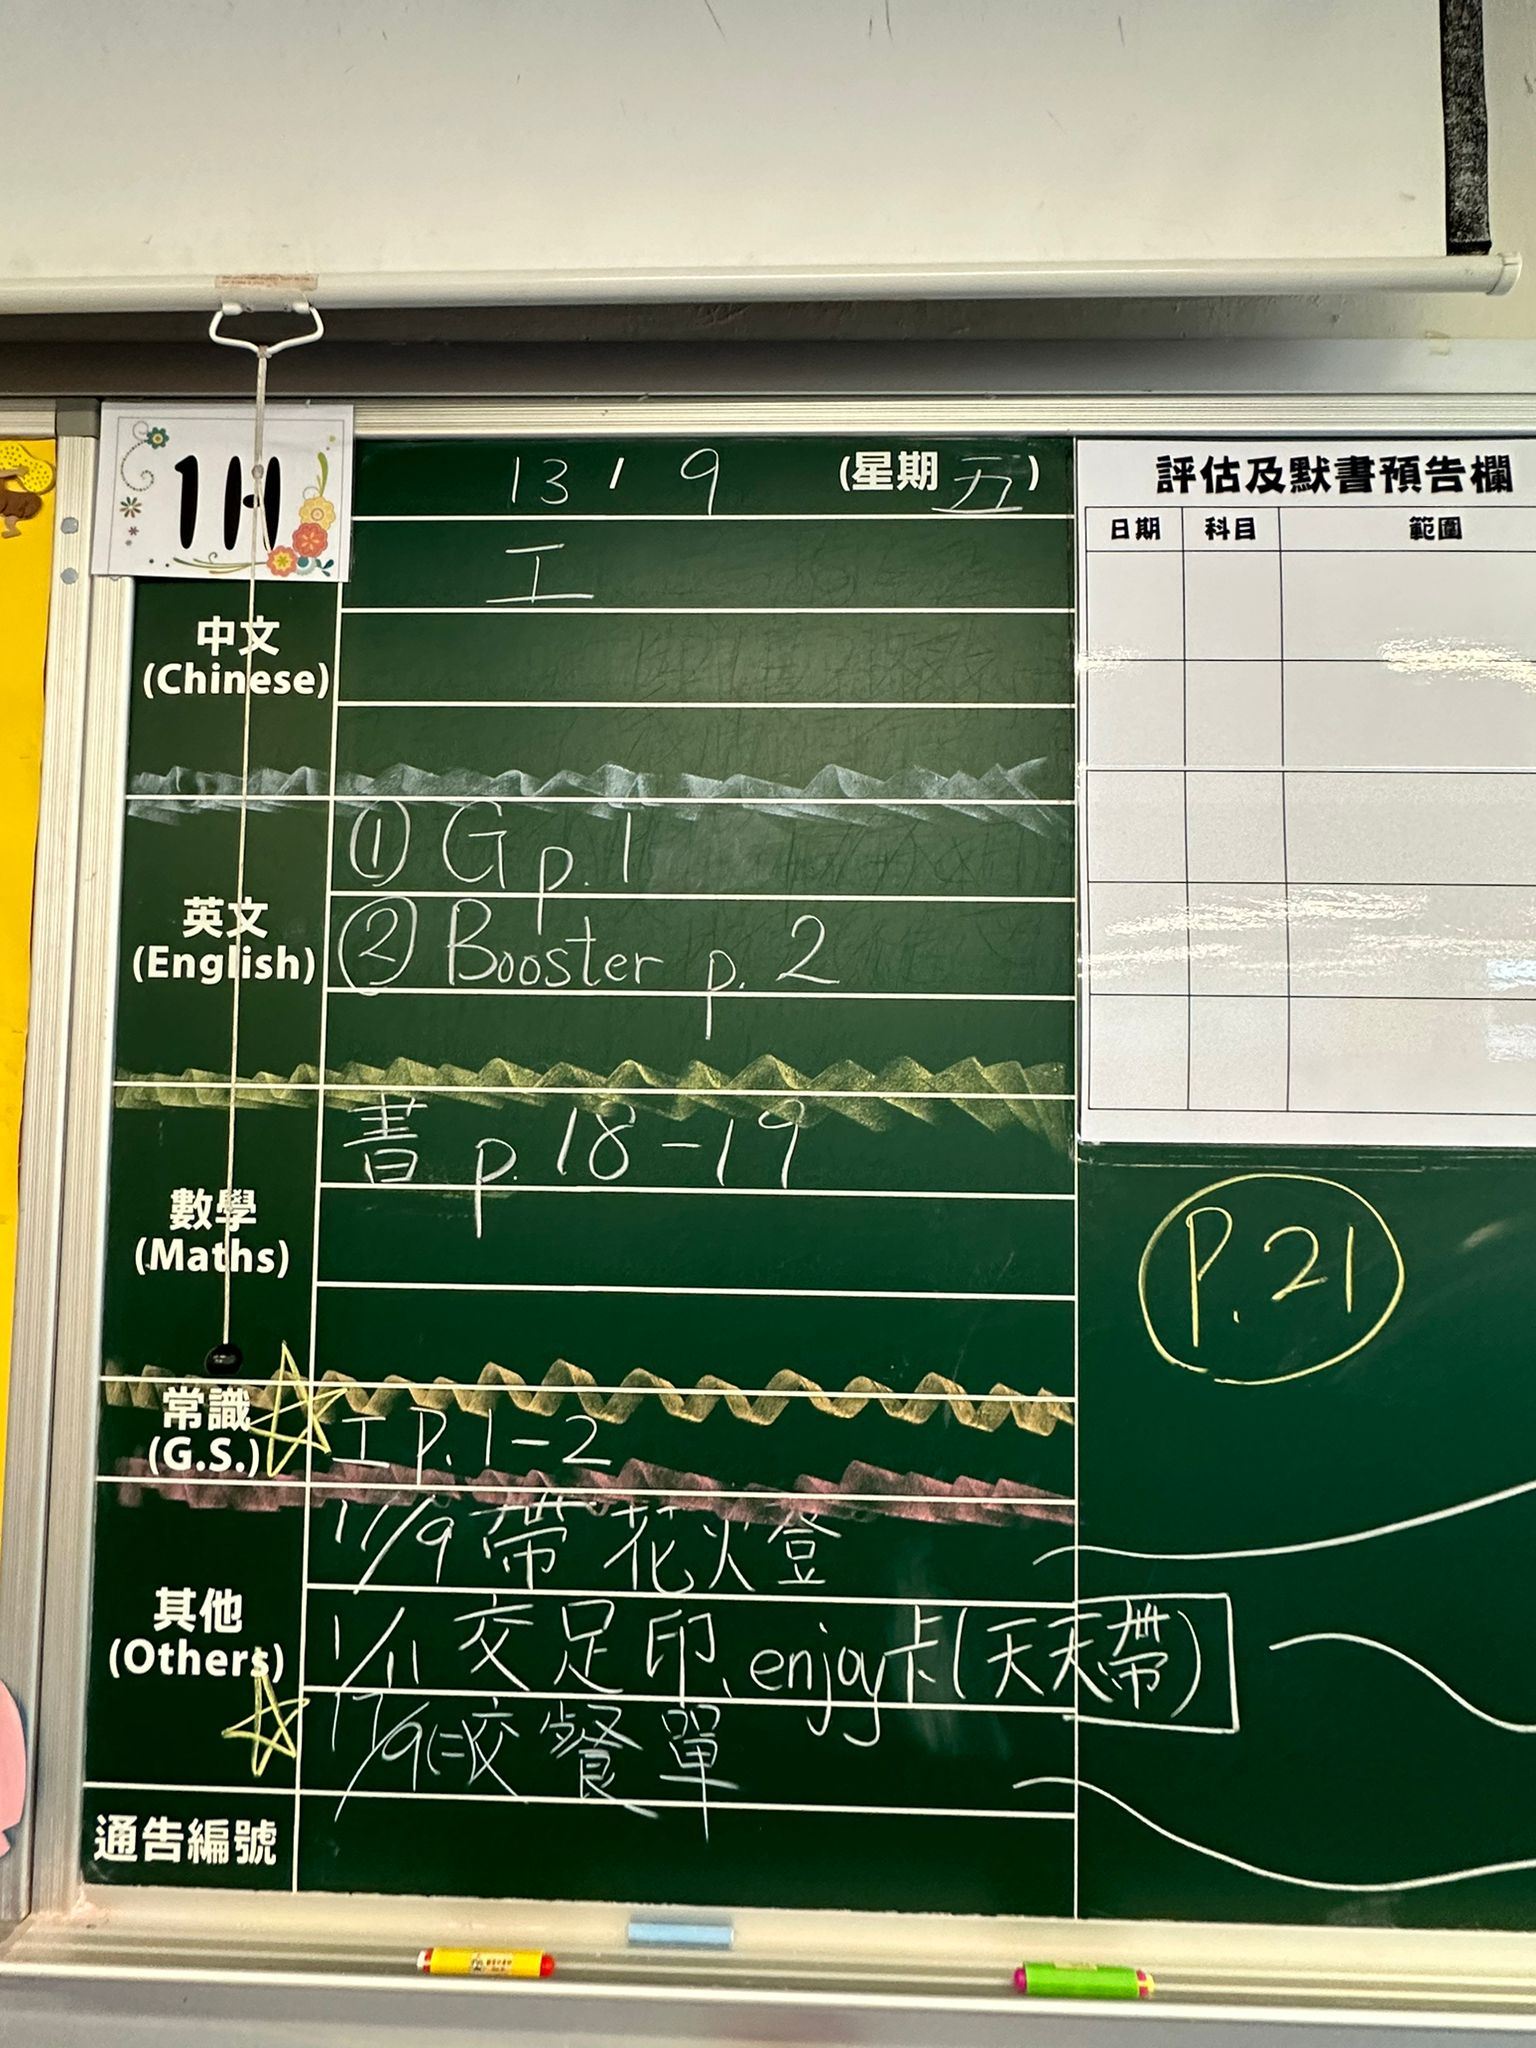 1H
13 / 9 (星期五)
工
中文
(Chinese)
① G p. 1
英文
(English)
② Booster p. 2
書 p. 18-19
數學
(Maths)
常識
(G.S.)
工 P. 1-2
17/9 帶花燈
其他
(Others)
1/11 交足印、enjoy卡(天天帶)
17/9(二)交餐單
通告編號
評估及默書預告欄
日期 科目 範圍
P. 21